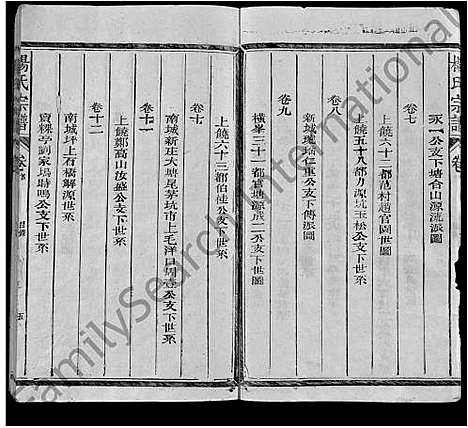 楊氏宗譜
卷
承一公支下塘合山源流派圖
卷七
上饒六十二都范村趙官園世圖
上饒五十八都力源坑玉松公支下世系
卷八
新城璣瑞仁重公支下傳派圖
卷九
橫峯三十一都官塘源成二公支下世圖
楊氏宗譜
卷
目錄
五
上饒六十三都伯佳公支下世系
卷十
南城新莊大塘尾茅坑市上毛洋口周壹公支下世系
卷十一
上饒鄭高山汝盛公支下世系
卷十二
南城坪上石橋解源世系
貢粿亭劉家塢時鳴公支下世系
FamilySearch International